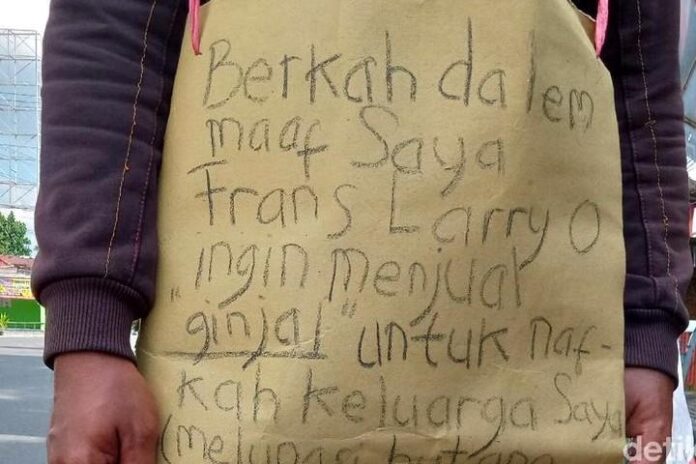 Berkah dalem
maaf Saya
Frans Larry O
"ingin menjual
ginjal" untuk naf-
kah keluarga Saya
(melunasi hutang
detik